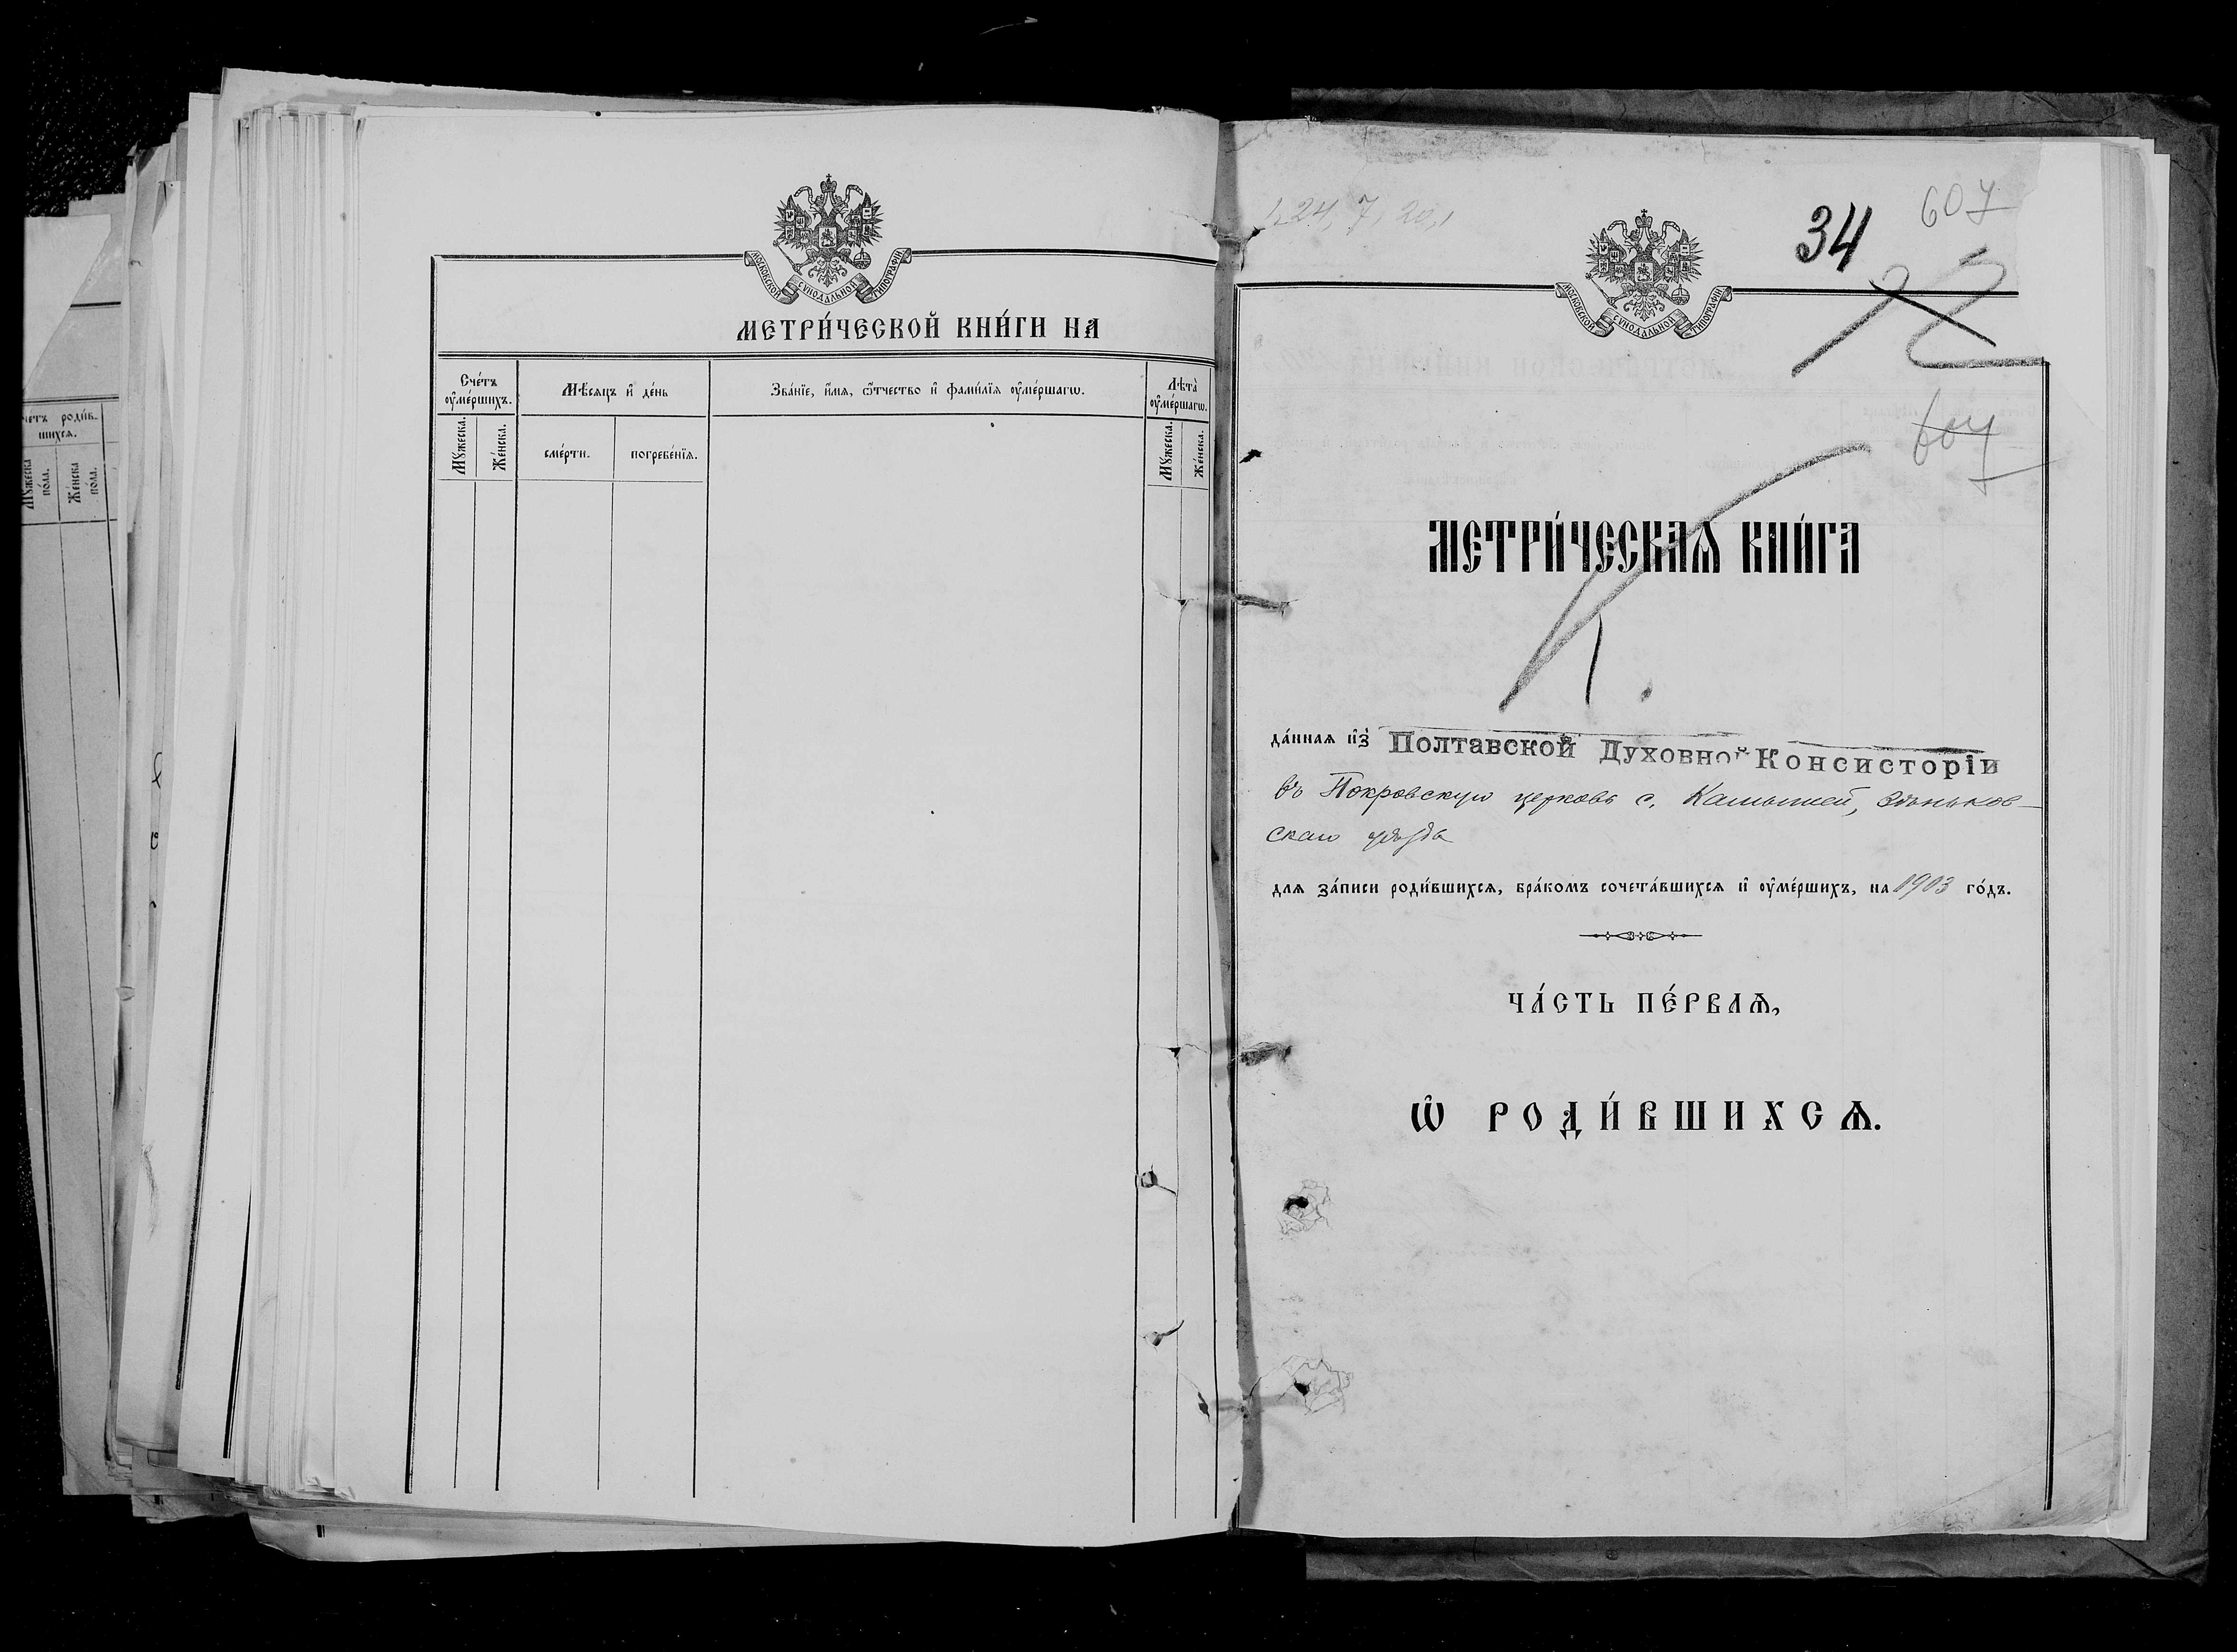 четъ роди́в-
шихся.
Мꙋ́жеска
по́ла.
Же́нска
по́ла.
МОСКОВСКОЙ СѴНОДАЛЬНОЙ ТИПОГРАФІИ
МЕТРИ́ЧЕСКОЙ КНИ́ГИ НА
Сче́тъ
ᲂу҆ме́ршихъ.
Мѣ́сяцъ и҆ де́нь
Зва́нїе, и҆́мя, ѻ҆́тчество и҆ фами́лїя ᲂу҆ме́ршагѡ.
Лѣта̀
ᲂу҆ме́ршагѡ.
Мꙋ́жеска.
Же́нска.
сме́рти.
погребе́нїя.
Мꙋ́жеска.
Же́нска.
34
607
МОСКОВСКОЙ СѴНОДАЛЬНОЙ ТИПОГРАФІИ
МЕТРИ́ЧЕСКАѦ КНИ́ГА
К.
да́нная и҆зъ Полтавской Духовной Консисторіи
въ Покровскую церковь с. Камышей, Зѣньков-
скаго уѣзда
для за́писи роди́вшихся, бра́комъ сочета́вшихся и҆ ᲂу҆ме́ршихъ, на 1903 го́дъ.
ЧА́СТЬ ПЕ́РВАѦ,
Ѡ҆ РОДИ́ВШИХСѦ.